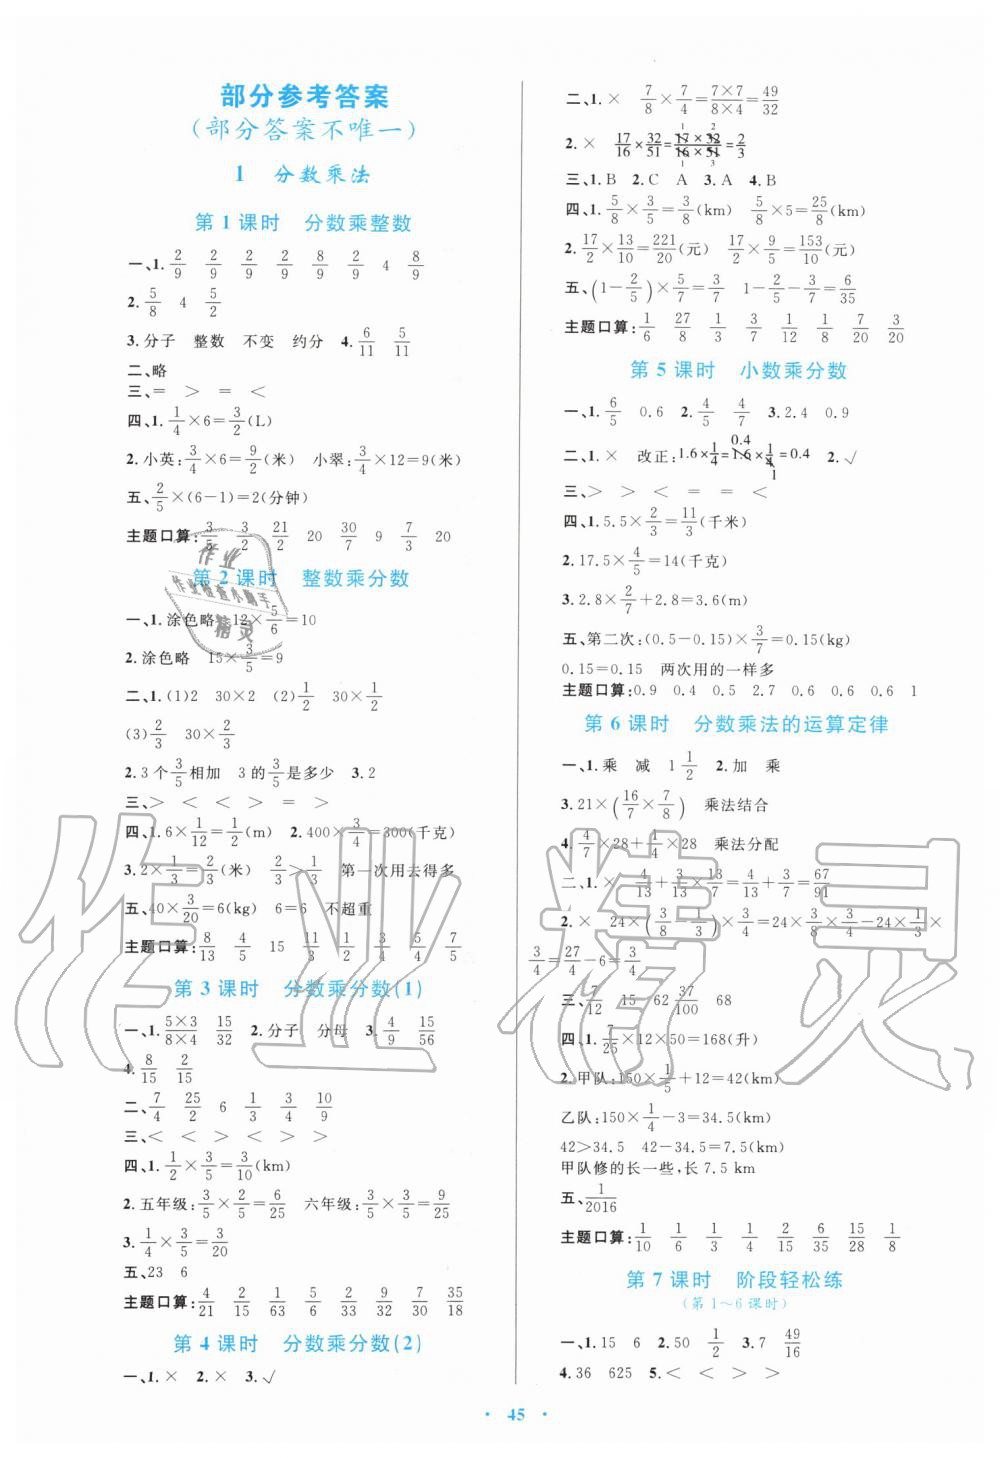 部分参考答案
(部分答案不唯一)
1 分数乘法
第 1 课时 分数乘整数
一、1. 2/9 2/9 2/9 2/9 8/9 2/9 4 8/9
2. 5/8 4 5/2
3. 分子 整数 不变 约分 4. 6/11 5/11
二、略
三、= > = <
四、1. 1/4×6=3/2(L)
2. 小英:3/4×6=9/2(米) 小翠:3/4×12=9(米)
五、2/5×(6-1)=2(分钟)
主题口算:3/5 3/2 21/2 20 30/7 9 7/3 20
第 2 课时 整数乘分数
一、1. 涂色略 12×5/6=10
2. 涂色略 15×3/5=9
二、1.(1)2 30×2 (2)1/2 30×1/2
(3)2/3 30×2/3
2. 3 个 3/5 相加 3 的 3/5 是多少 3. 2
三、> < < > = >
四、1. 6×1/12=1/2(m) 2. 400×3/4=300(千克)
3. 2×1/3=2/3(米) 2/3>1/3 第一次用去得多
五、40×3/20=6(kg) 6=6 不超重
主题口算:8/13 4/5 15 11/3 1/2 3/4 4/5 7/5
第 3 课时 分数乘分数(1)
一、1. 5×3/8×4 15/32 2. 分子 分母 3. 4/9 15/56
4. 8/15 2/15
二、7/4 25/2 6 1/3 3/4 10/9
三、< < > < < >
四、1. 1/2×3/5=3/10(km)
2. 五年级:3/5×2/5=6/25 六年级:3/5×3/5=9/25
3. 1/4×3/5=3/20
五、23 6
主题口算:4/21 2/15 1/63 5/32 8/33 9/20 7/30 35/18
第 4 课时 分数乘分数(2)
一、1. × 2. × 3. √
二、1. × 7/8×7/4=7×7/8×4=49/32
2. × 17/16×32/51=17×32/16×51=2/3
三、1. B 2. C A 3. A 4. B
四、1. 5/8×3/5=3/8(km) 5/8×5=25/8(km)
2. 17/2×13/10=221/20(元) 17/2×9/5=153/10(元)
五、(1-2/5)×5/7=3/7 1-2/5-3/7=6/35
主题口算:1/6 27/8 1/3 3/7 1/12 1/8 7/20 3/20
第 5 课时 小数乘分数
一、1. 6/5 0.6 2. 4/5 4/7 3. 2.4 0.9
二、1. × 改正:1.6×1/4=1.6×1/4=0.4 2. √
三、> > > = = <
四、1. 5.5×2/3=11/3(千米)
2. 17.5×4/5=14(千克)
3. 2.8×2/7+2.8=3.6(m)
五、第二次:(0.5-0.15)×3/7=0.15(kg)
0.15=0.15 两次用的一样多
主题口算:0.9 0.4 0.5 2.7 0.6 0.6 0.6 1
第 6 课时 分数乘法的运算定律
一、1. 乘 减 1 1/2 2. 加 乘
3. 21×(16/7×7/8) 乘法结合
4. 4/7×28+1/4×28 乘法分配
二、1. × 4/13+3/7×13/7=4/13+3/7=67/91
2. × 24×(3/8-1/3)×3/4=24×3/8×3/4-24×1/3×
3/4=27/4-6=3/4
三、7/12 15 62 37/100 68
四、1. 7/25×12×50=168(升)
2. 甲队:150×1/5+12=42(km)
乙队:150×1/4-3=34.5(km)
42>34.5 42-34.5=7.5(km)
甲队修的长一些,长 7.5 km
五、1/2016
主题口算:1/10 1/6 1/3 1/4 2/15 6/35 15/28 1/8
第 7 课时 阶段轻松练
(第 1~6 课时)
一、1. 15 6 2. 50 1/2 3. 7 49/16
4. 36 625 5. < < > >
· 45 ·